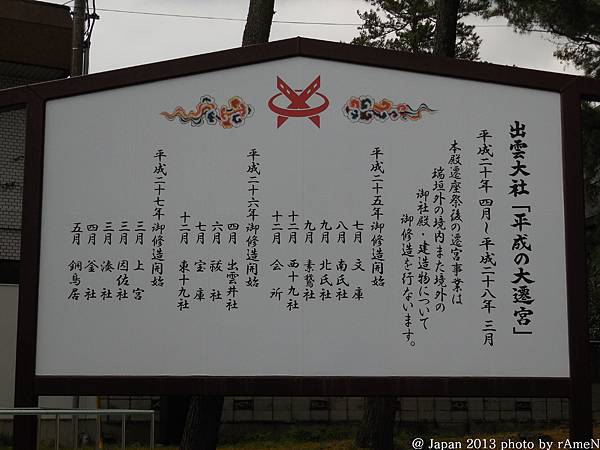 出雲大社「平成の大遷宮」
平成二十年 四月〜平成二十八年 三月
本殿遷座祭後の遷宮事業は
瑞垣外の境内また境外の
御社殿・建造物について
御修造を行ないます。
平成二十五年御修造開始
七月 文庫
八月 南氏社
九月 北氏社
九月 素鵞社
十二月 西十九社
十二月 会所
平成二十六年御修造開始
四月 出雲井社
六月 祓社
七月 宝庫
十二月 東十九社
平成二十七年御修造開始
三月 上宮
三月 因佐社
三月 湊社
四月 釜社
五月 銅鳥居
@ Japan 2013 photo by rAmeN